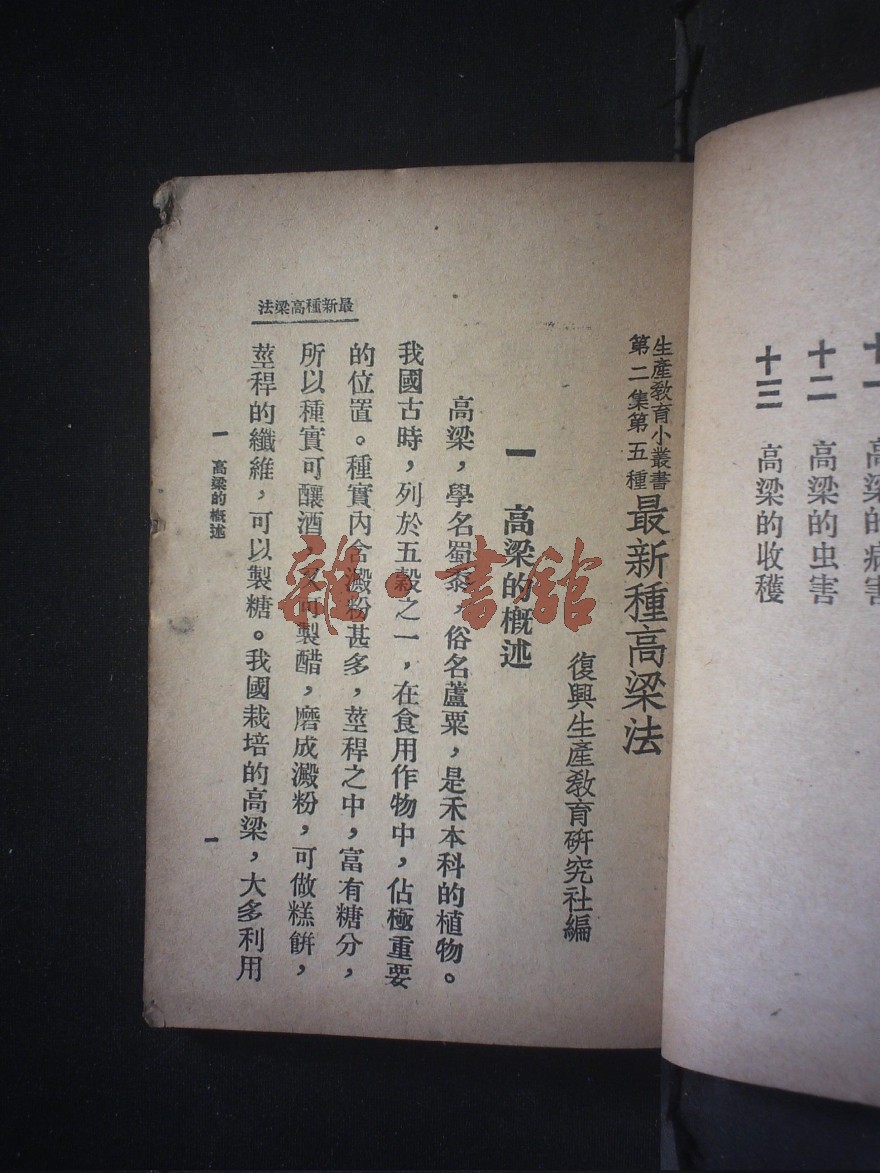 十一 高粱的病害
十二 高粱的虫害
十三 高粱的收穫
生產敎育小叢書
第二集第五種
最新種高粱法
復興生產敎育硏究社編
一 高粱的槪述
高粱，學名蜀黍，俗名蘆粟，是禾本科的植物。
我國古時，列於五穀之一，在食用作物中，佔極重要
的位置。種實內含澱粉甚多，莖稈之中，富有糖分，
所以種實可釀酒，又可製醋，磨成澱粉，可做糕餅，
莖稈的纖維，可以製糖。我國栽培的高粱，大多利用
最新種高粱法
一 高粱的槪述
一
雜·書館